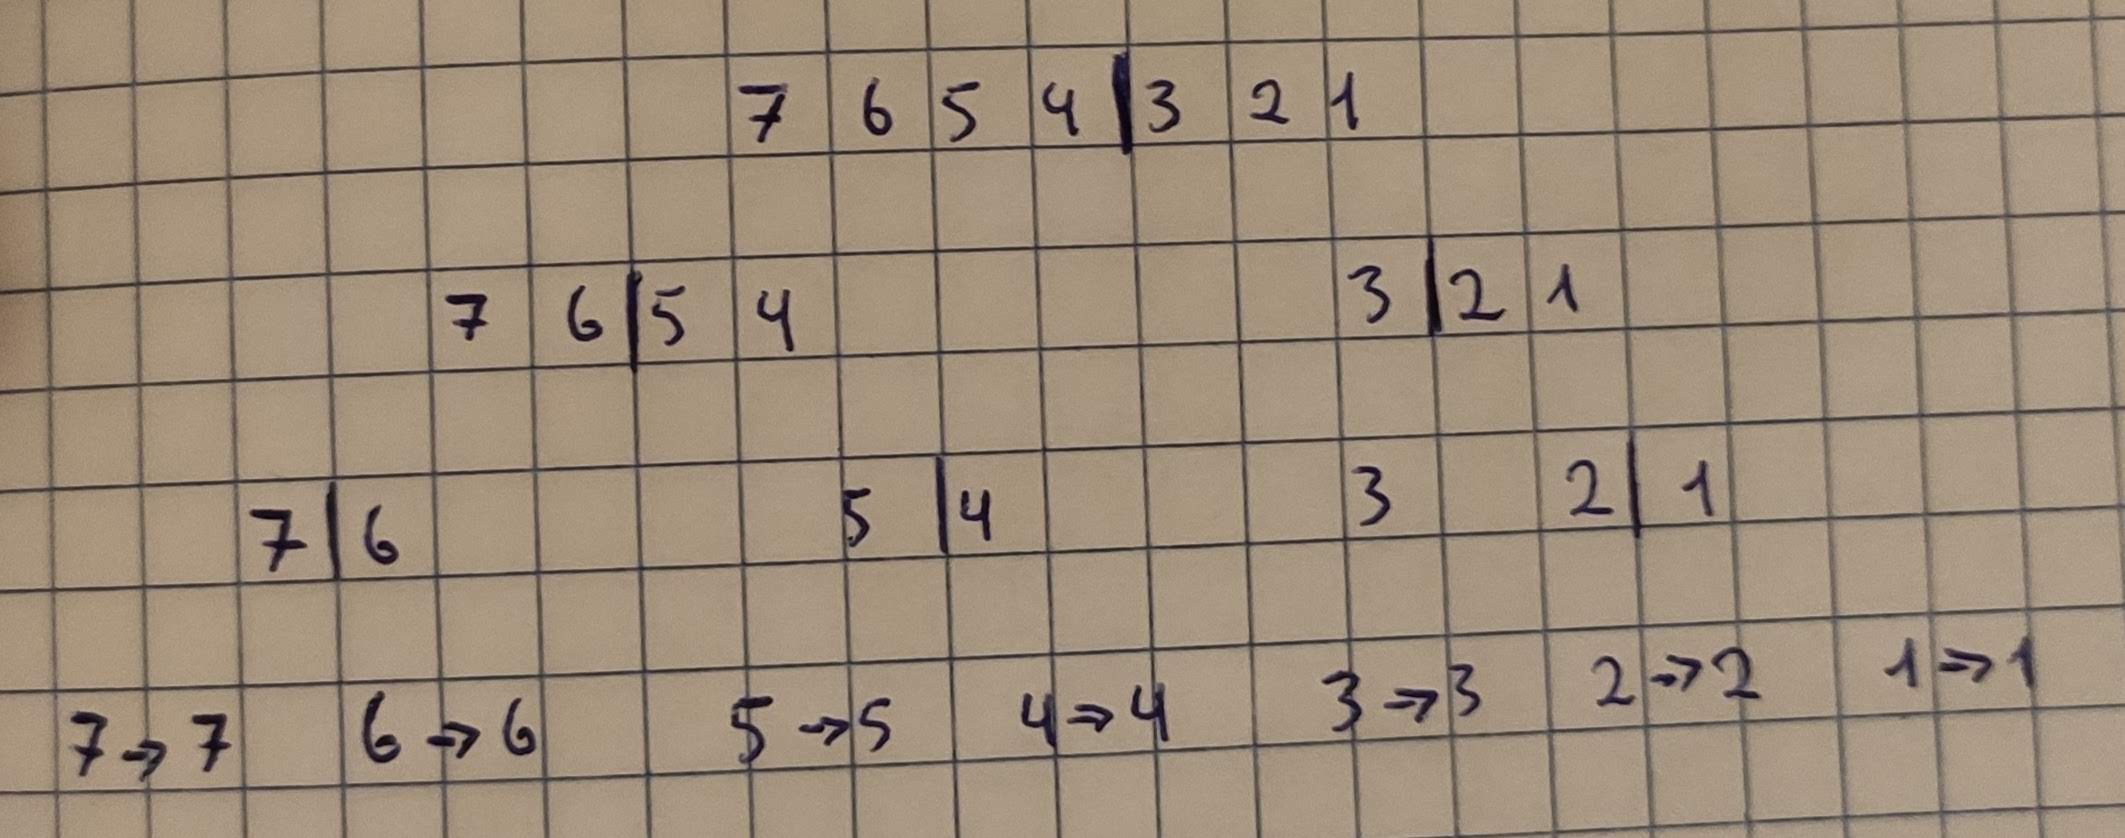 7 6 5 4 | 3 2 1
7 6 | 5 4 3 | 2 1
7 | 6 5 | 4 3 2 | 1
7 → 7 6 → 6 5 → 5 4 → 4 3 → 3 2 → 2 1 → 1